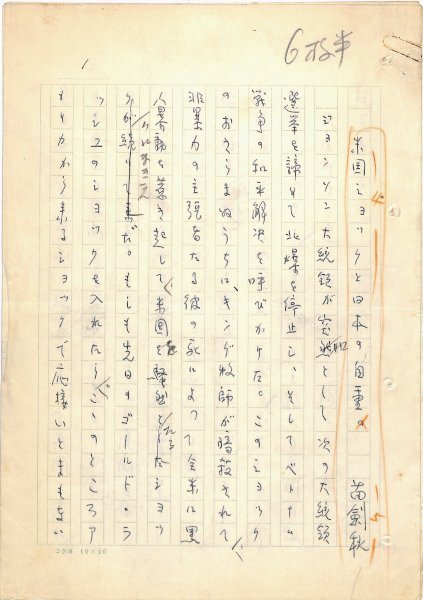 6枚半
米国ショックと日本の自重 苗剣秋
ジョンソン大統領が突如として次の大統領
選挙を諦めて北爆を停止し、そしてベトナム
戦争の和平解決を呼びかけた。このショック
のおさまらぬうちに、キング牧師が暗殺されて、
非暴力の主張者たる彼の死によって全米に黒
人暴動を惹き起して米国を騒然たらしたショッ
クが続いて来だ。もしも先日のゴールド・ラ
ッシュのショックを入れたら、このところア
メリカから来るショックで応接いとまもない
コクヨ 10×20